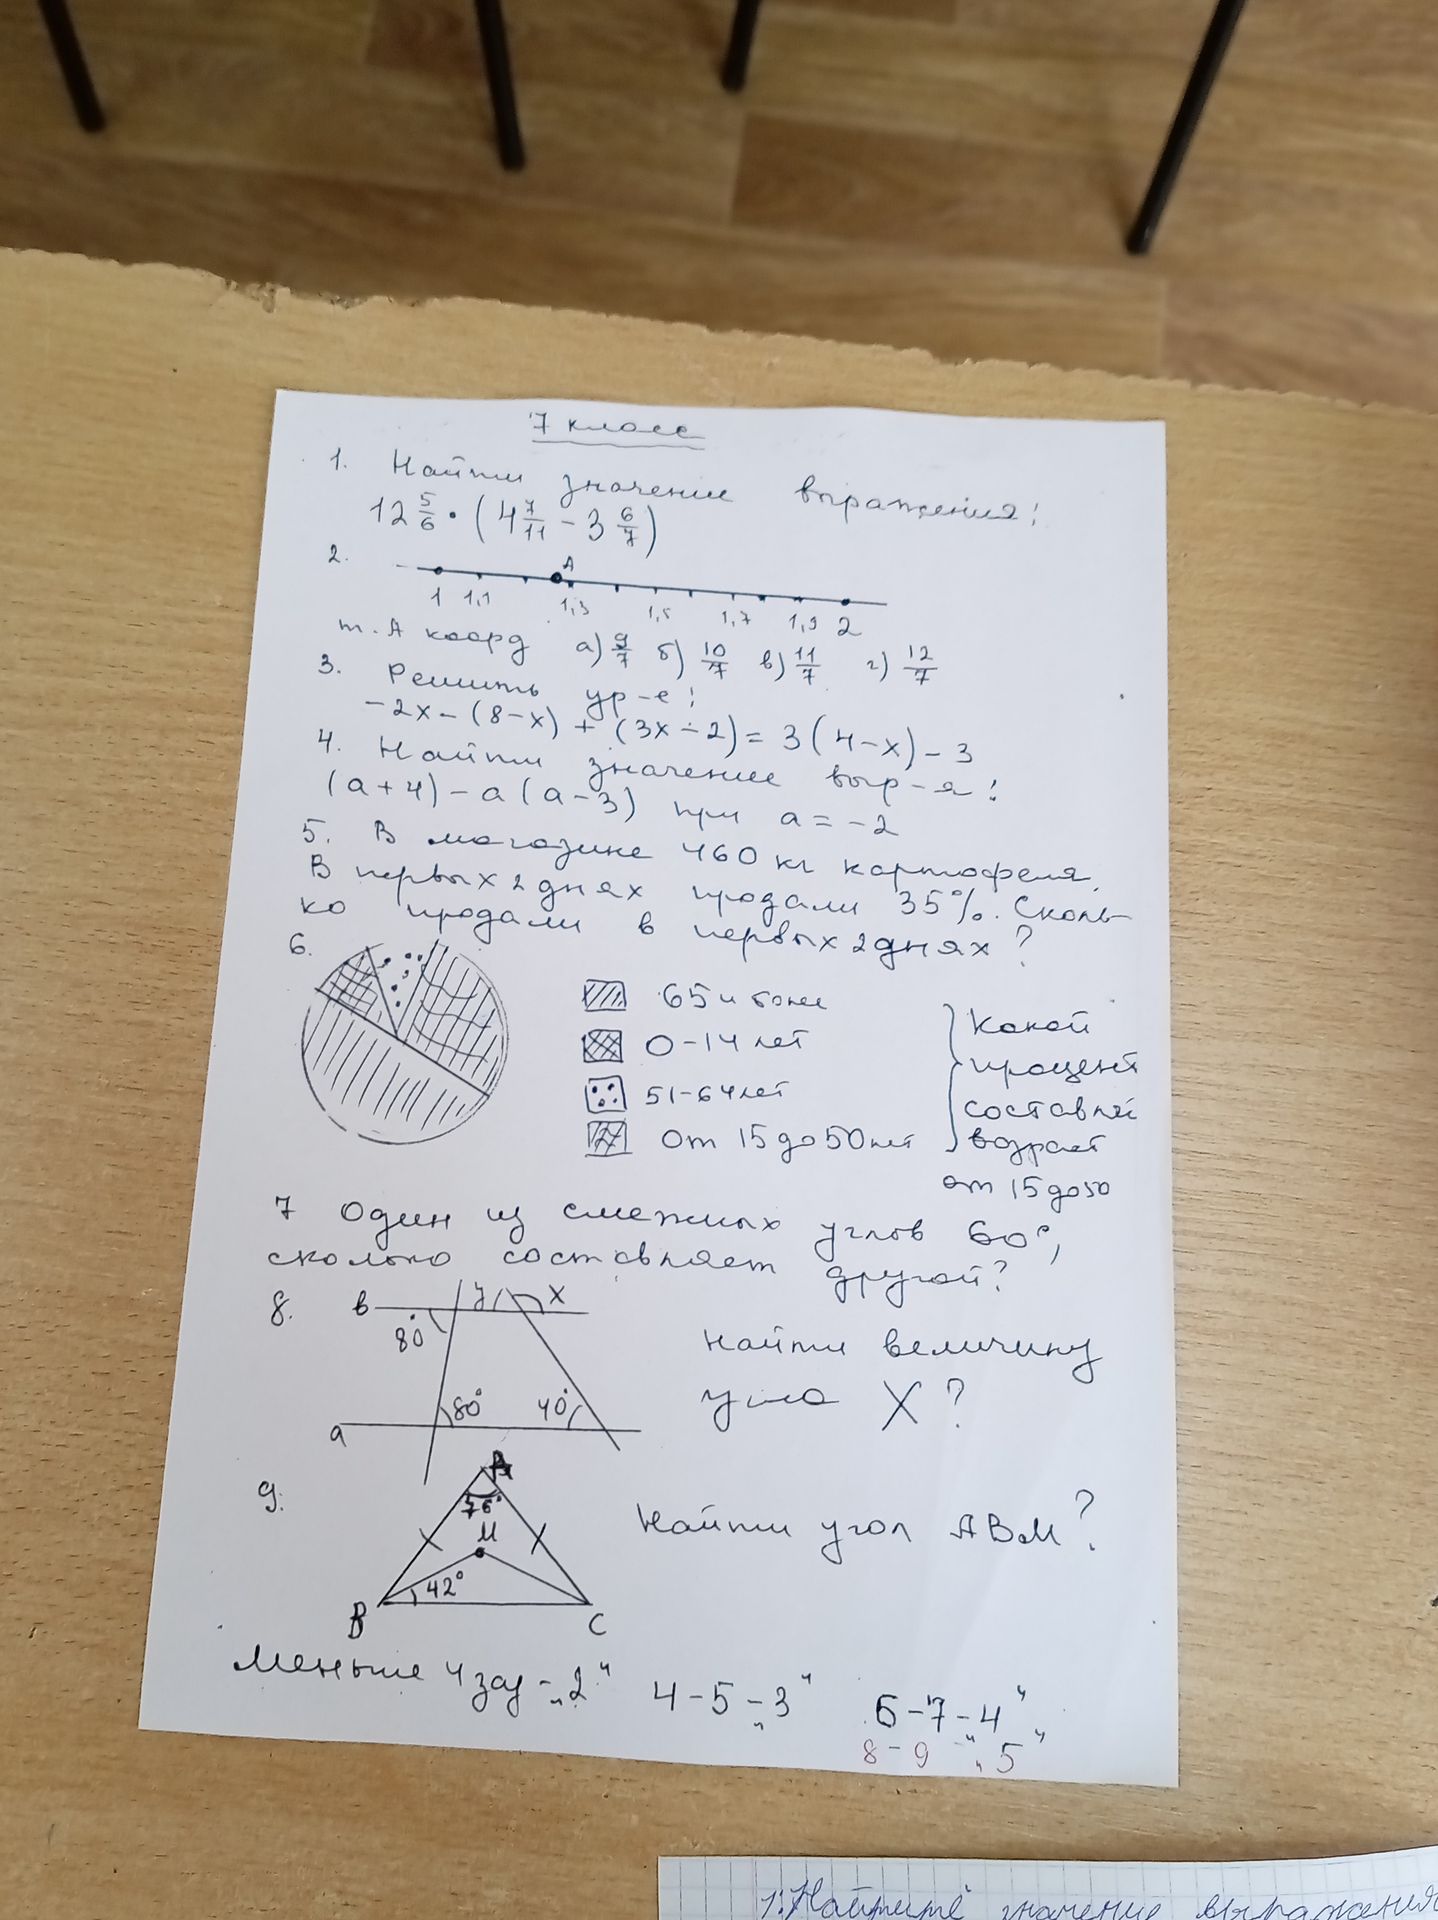 7 класс
1. Найти значение выражения:
12 5/6 · (4 7/11 - 3 6/7)
2.
A
1 1,1 1,3 1,5 1,7 1,9 2
т. А коорд а) 9/7 б) 10/7 в) 11/7 г) 12/7
3. Решить ур-е:
-2x - (8-x) + (3x-2) = 3(4-x) - 3
4. Найти значение выр-я:
(a+4) - a(a-3) при a = -2
5. В магазине 460 кг картофеля.
В первых 2 днях продали 35%. Сколь-
ко продали в первых 2 днях?
6.
65 и более
0-14 лет
51-64 лет
от 15 до 50 лет
Какой
процент
составляет
возраст
от 15 до 50
7 Один из смежных углов 60°,
сколько составляет другой?
8. в у х
80°
80° 40°
а
Найти величину
угла X?
9.
A
76°
М
42°
B C
Найти угол АВМ?
Меньше 4 зад - „2" 4-5 - „3" 6-7 - „4"
8-9 - „5"
1. Найдите значение выражения